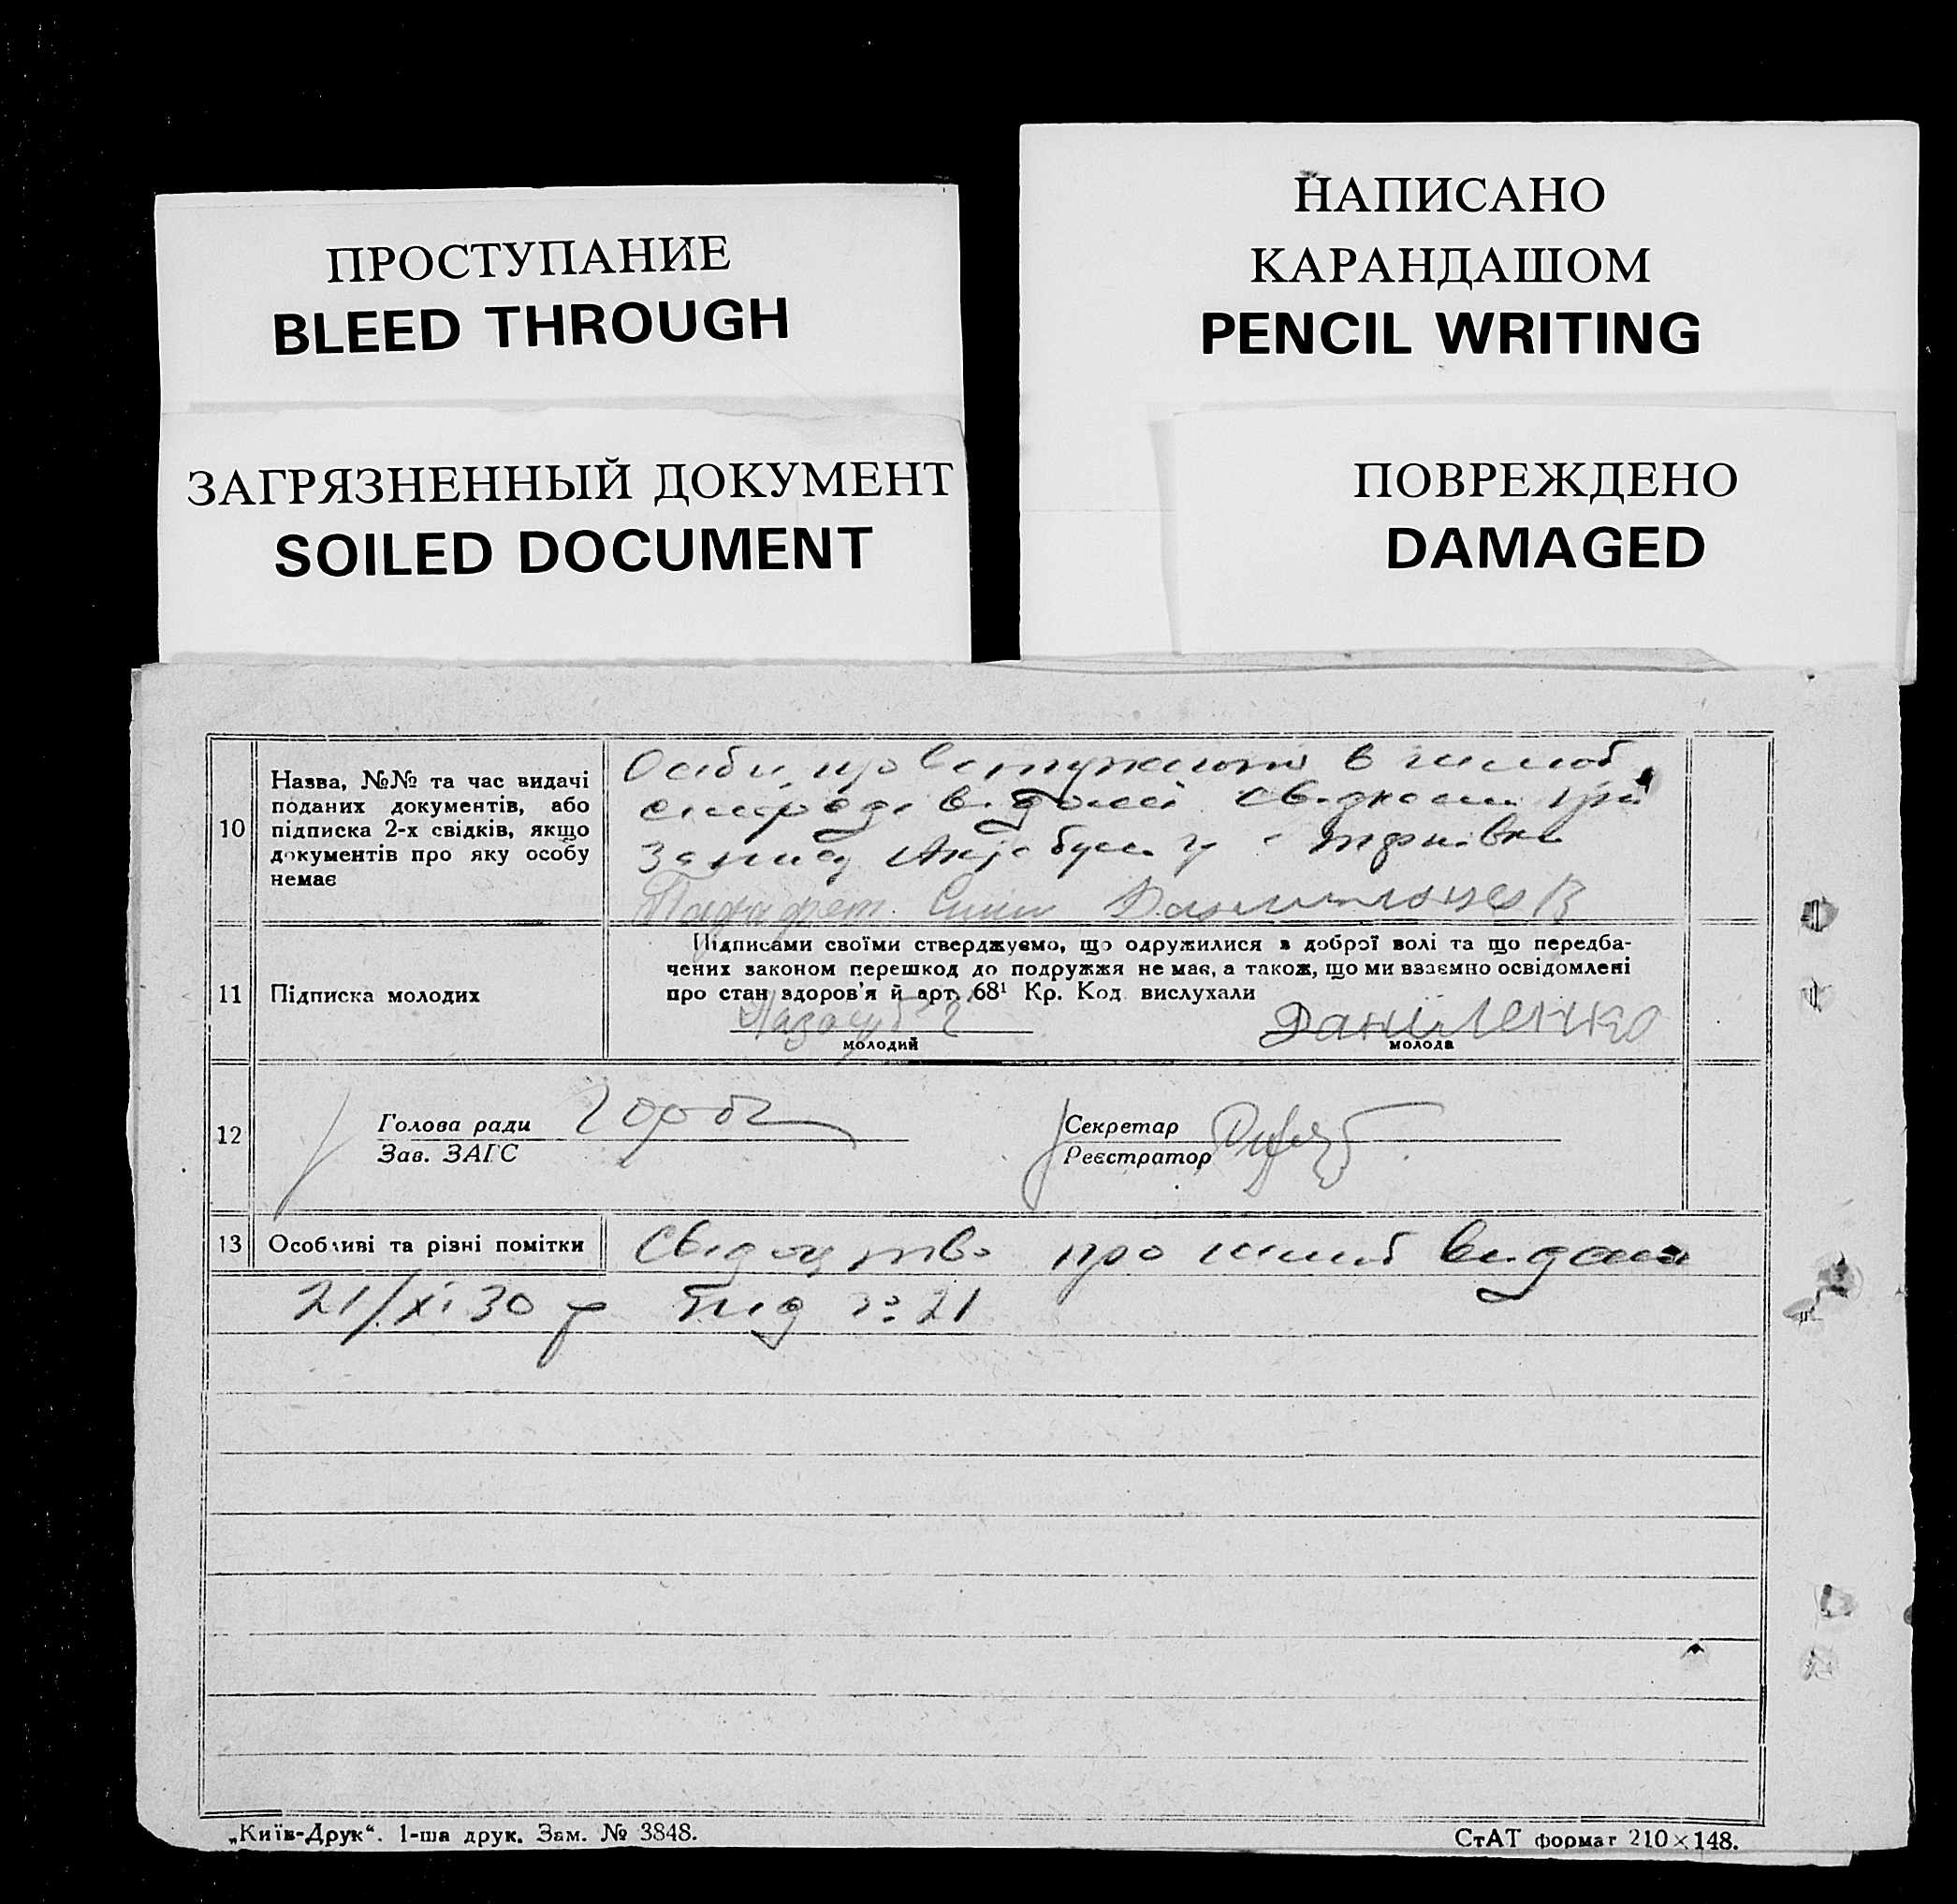 ПРОСТУПАНИЕ
BLEED THROUGH
ЗАГРЯЗНЕННЫЙ ДОКУМЕНТ
SOILED DOCUMENT
НАПИСАНО
КАРАНДАШОМ
PENCIL WRITING
ПОВРЕЖДЕНО
DAMAGED
10
Назва, №№ та час видачі
поданих документів, або
підписка 2-х свідків, якщо
документів про яку особу
немає
Особи, що вступають в шлюб
в
11
Підписка молодих
Підписами своїми стверджуємо, що одружилися з доброї волі та що передба-
чених законом перешкод до подружжя не має, а також, що ми взаємно освідомлені
про стан здоров'я й арт. 68¹ Кр. Код вислухали
молодий
Даніленко
молода
12
Голова ради
Зав. ЗАГС
Секретар
Реєстратор
13
Особливі та різні помітки
Свідоцтво про шлюб видано
21/XI 30 р під № 21
„Київ-Друк“. 1-ша друк. Зам. № 3848.
СтАТ формат 210×148.